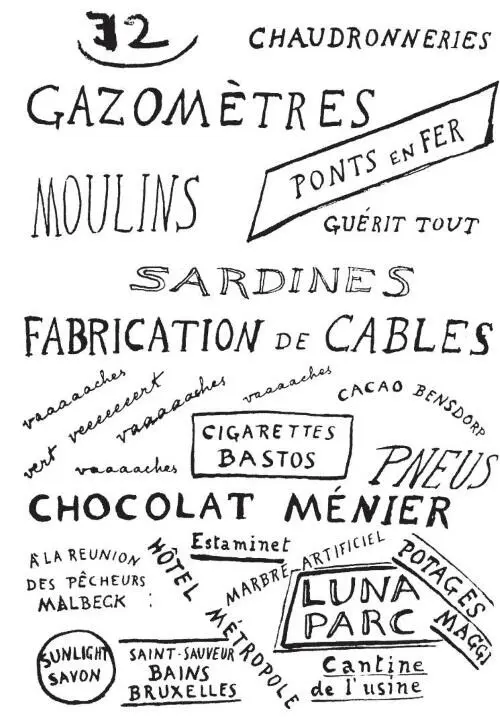 32
CHAUDRONNERIES
GAZOMÈTRES
PONTS en FER
MOULINS
GUÉRIT TOUT
SARDINES
FABRICATION DE CABLES
vaaaaaches
vert veeeeeeert
vaaaaaches
vaaaaaches
CACAO BENSDORP
vaaaaaches
CIGARETTES
BASTOS
PNEUS
CHOCOLAT MÉNIER
À LA REUNION
DES PÊCHEURS
MALBECK :
HÔTEL MÉTROPOLE
Estaminet
MARBRE ARTIFICIEL
LUNA
PARC
POTAGES
MAGGI
SUNLIGHT
SAVON
SAINT-SAUVEUR
BAINS
BRUXELLES
Cantine
de l'usine